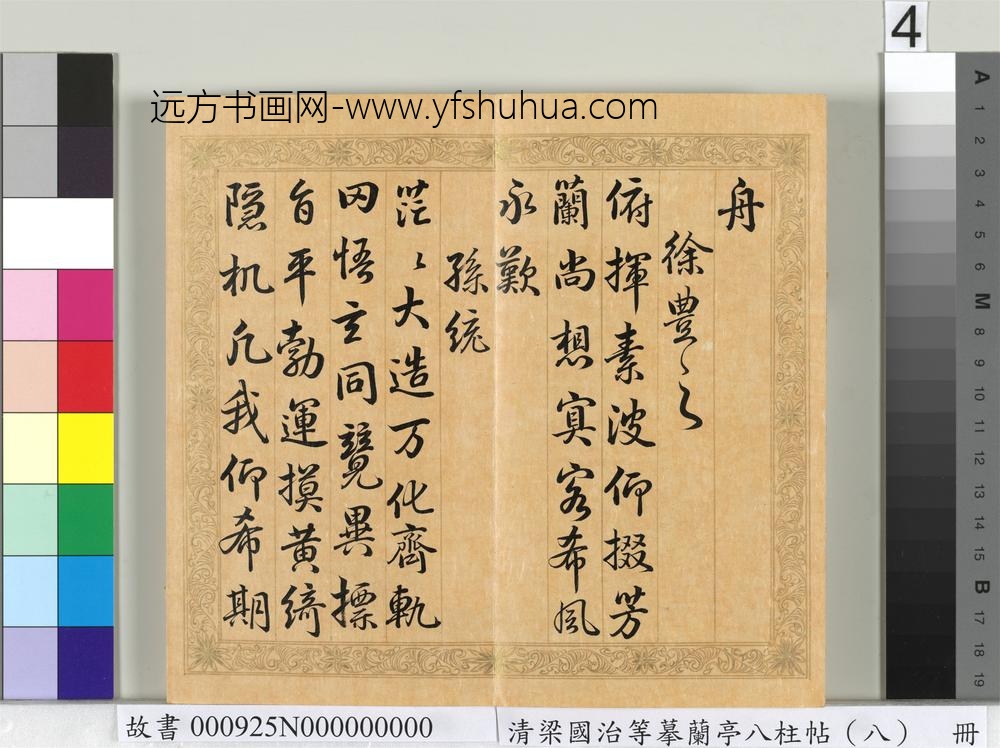 4
远方书画网-www.yfshuhua.com
舟
徐豊〻之
俯揮素波仰掇芳
蘭尚想寘客希風
永歎
孫統
茫〻大造万化齊軌
罔悟玄同競異摽
旨平勃運摸黄綺
隠机凢我仰希期
A 1 2 3 4 5 6 M 8 9 10 11 12 13 14 15 B 17 18 19
故書 000925N000000000
清梁國治等摹蘭亭八柱帖（八） 冊